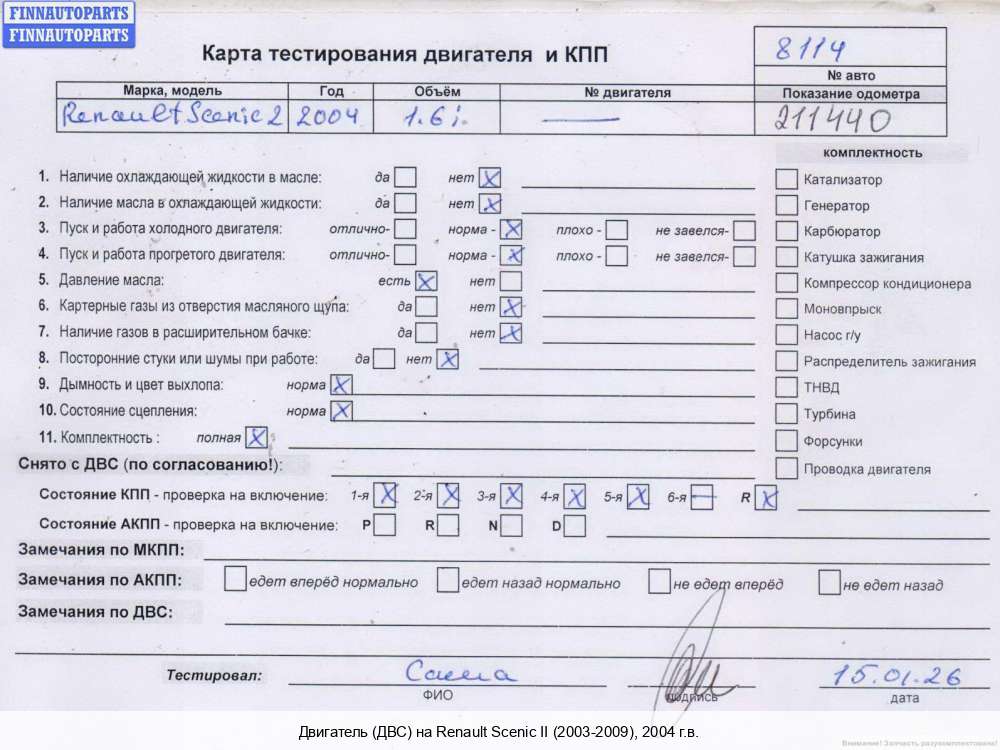 FINNAUTOPARTS
FINNAUTOPARTS
Карта тестирования двигателя и КПП
8114
№ авто
Марка, модель Год Объём № двигателя Показание одометра
Renault Scenic 2 2004 1.6 i. — 211440
комплектность
1. Наличие охлаждающей жидкости в масле: да нет X
Катализатор
2. Наличие масла в охлаждающей жидкости: да нет X
Генератор
3. Пуск и работа холодного двигателя: отлично- норма - X плохо - не завелся-
Карбюратор
4. Пуск и работа прогретого двигателя: отлично- норма - X плохо - не завелся-
Катушка зажигания
5. Давление масла: есть X нет
Компрессор кондиционера
6. Картерные газы из отверстия масляного щупа: да нет X
Моновпрыск
7. Наличие газов в расширительном бачке: да нет X
Насос г/у
8. Посторонние стуки или шумы при работе: да нет X
Распределитель зажигания
9. Дымность и цвет выхлопа: норма X
ТНВД
10. Состояние сцепления: норма X
Турбина
11. Комплектность : полная X
Форсунки
Снято с ДВС (по согласованию!):
Проводка двигателя
Состояние КПП - проверка на включение: 1-я X 2-я X 3-я X 4-я X 5-я X 6-я — R X
Состояние АКПП - проверка на включение: P R N D
Замечания по МКПП:
Замечания по АКПП: едет вперёд нормально едет назад нормально не едет вперёд не едет назад
Замечания по ДВС:
Тестировал: Саша 15.01.26
ФИО подпись дата
Двигатель (ДВС) на Renault Scenic II (2003-2009), 2004 г.в.
Внимание! Запчасть разукомплектована!